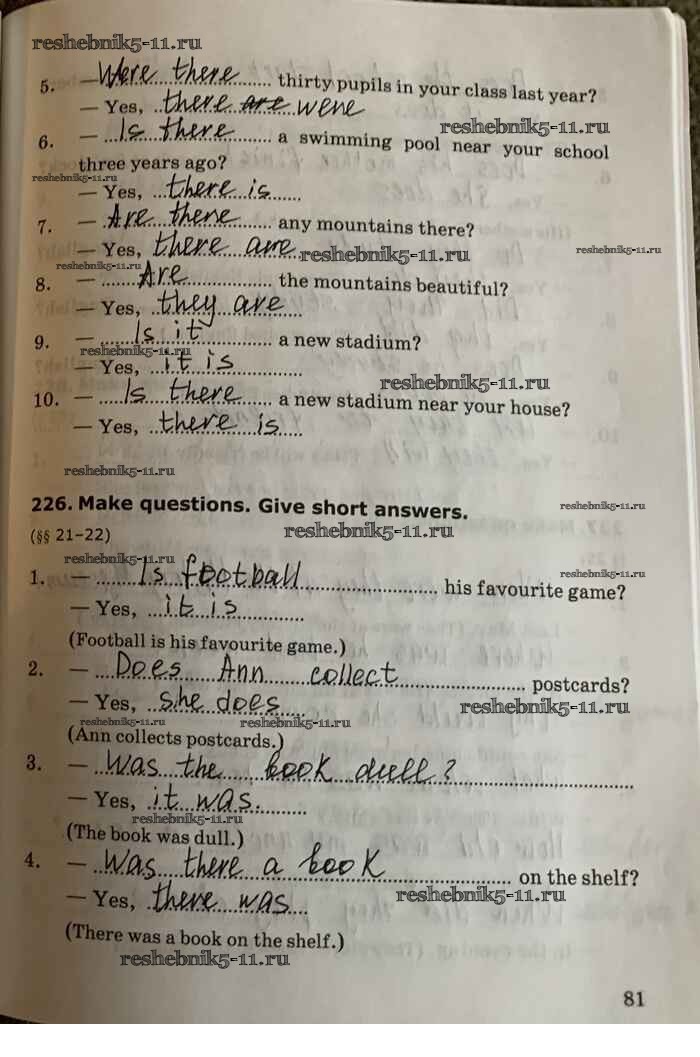 reshebnik5-11.ru
5. – Were there thirty pupils in your class last year?
– Yes, there are were
reshebnik5-11.ru
6. – Is there a swimming pool near your school
three years ago?
reshebnik5-11.ru
– Yes, there is
7. – Are there any mountains there?
– Yes, there are
reshebnik5-11.ru
reshebnik5-11.ru
reshebnik5-11.ru
8. – Are the mountains beautiful?
– Yes, they are
9. – Is it a new stadium?
reshebnik5-11.ru
– Yes, it is
reshebnik5-11.ru
10. – Is there a new stadium near your house?
– Yes, there is
reshebnik5-11.ru
226. Make questions. Give short answers.
reshebnik5-11.ru
(§§ 21–22)
reshebnik5-11.ru
reshebnik5-11.ru
reshebnik5-11.ru
1. – Is football his favourite game?
– Yes, it is
(Football is his favourite game.)
2. – Does Ann collect postcards?
– Yes, she does
reshebnik5-11.ru
reshebnik5-11.ru
reshebnik5-11.ru
(Ann collects postcards.)
3. – Was the book dull?
– Yes, it was.
reshebnik5-11.ru
(The book was dull.)
4. – Was there a book on the shelf?
– Yes, there was
reshebnik5-11.ru
(There was a book on the shelf.)
reshebnik5-11.ru
81